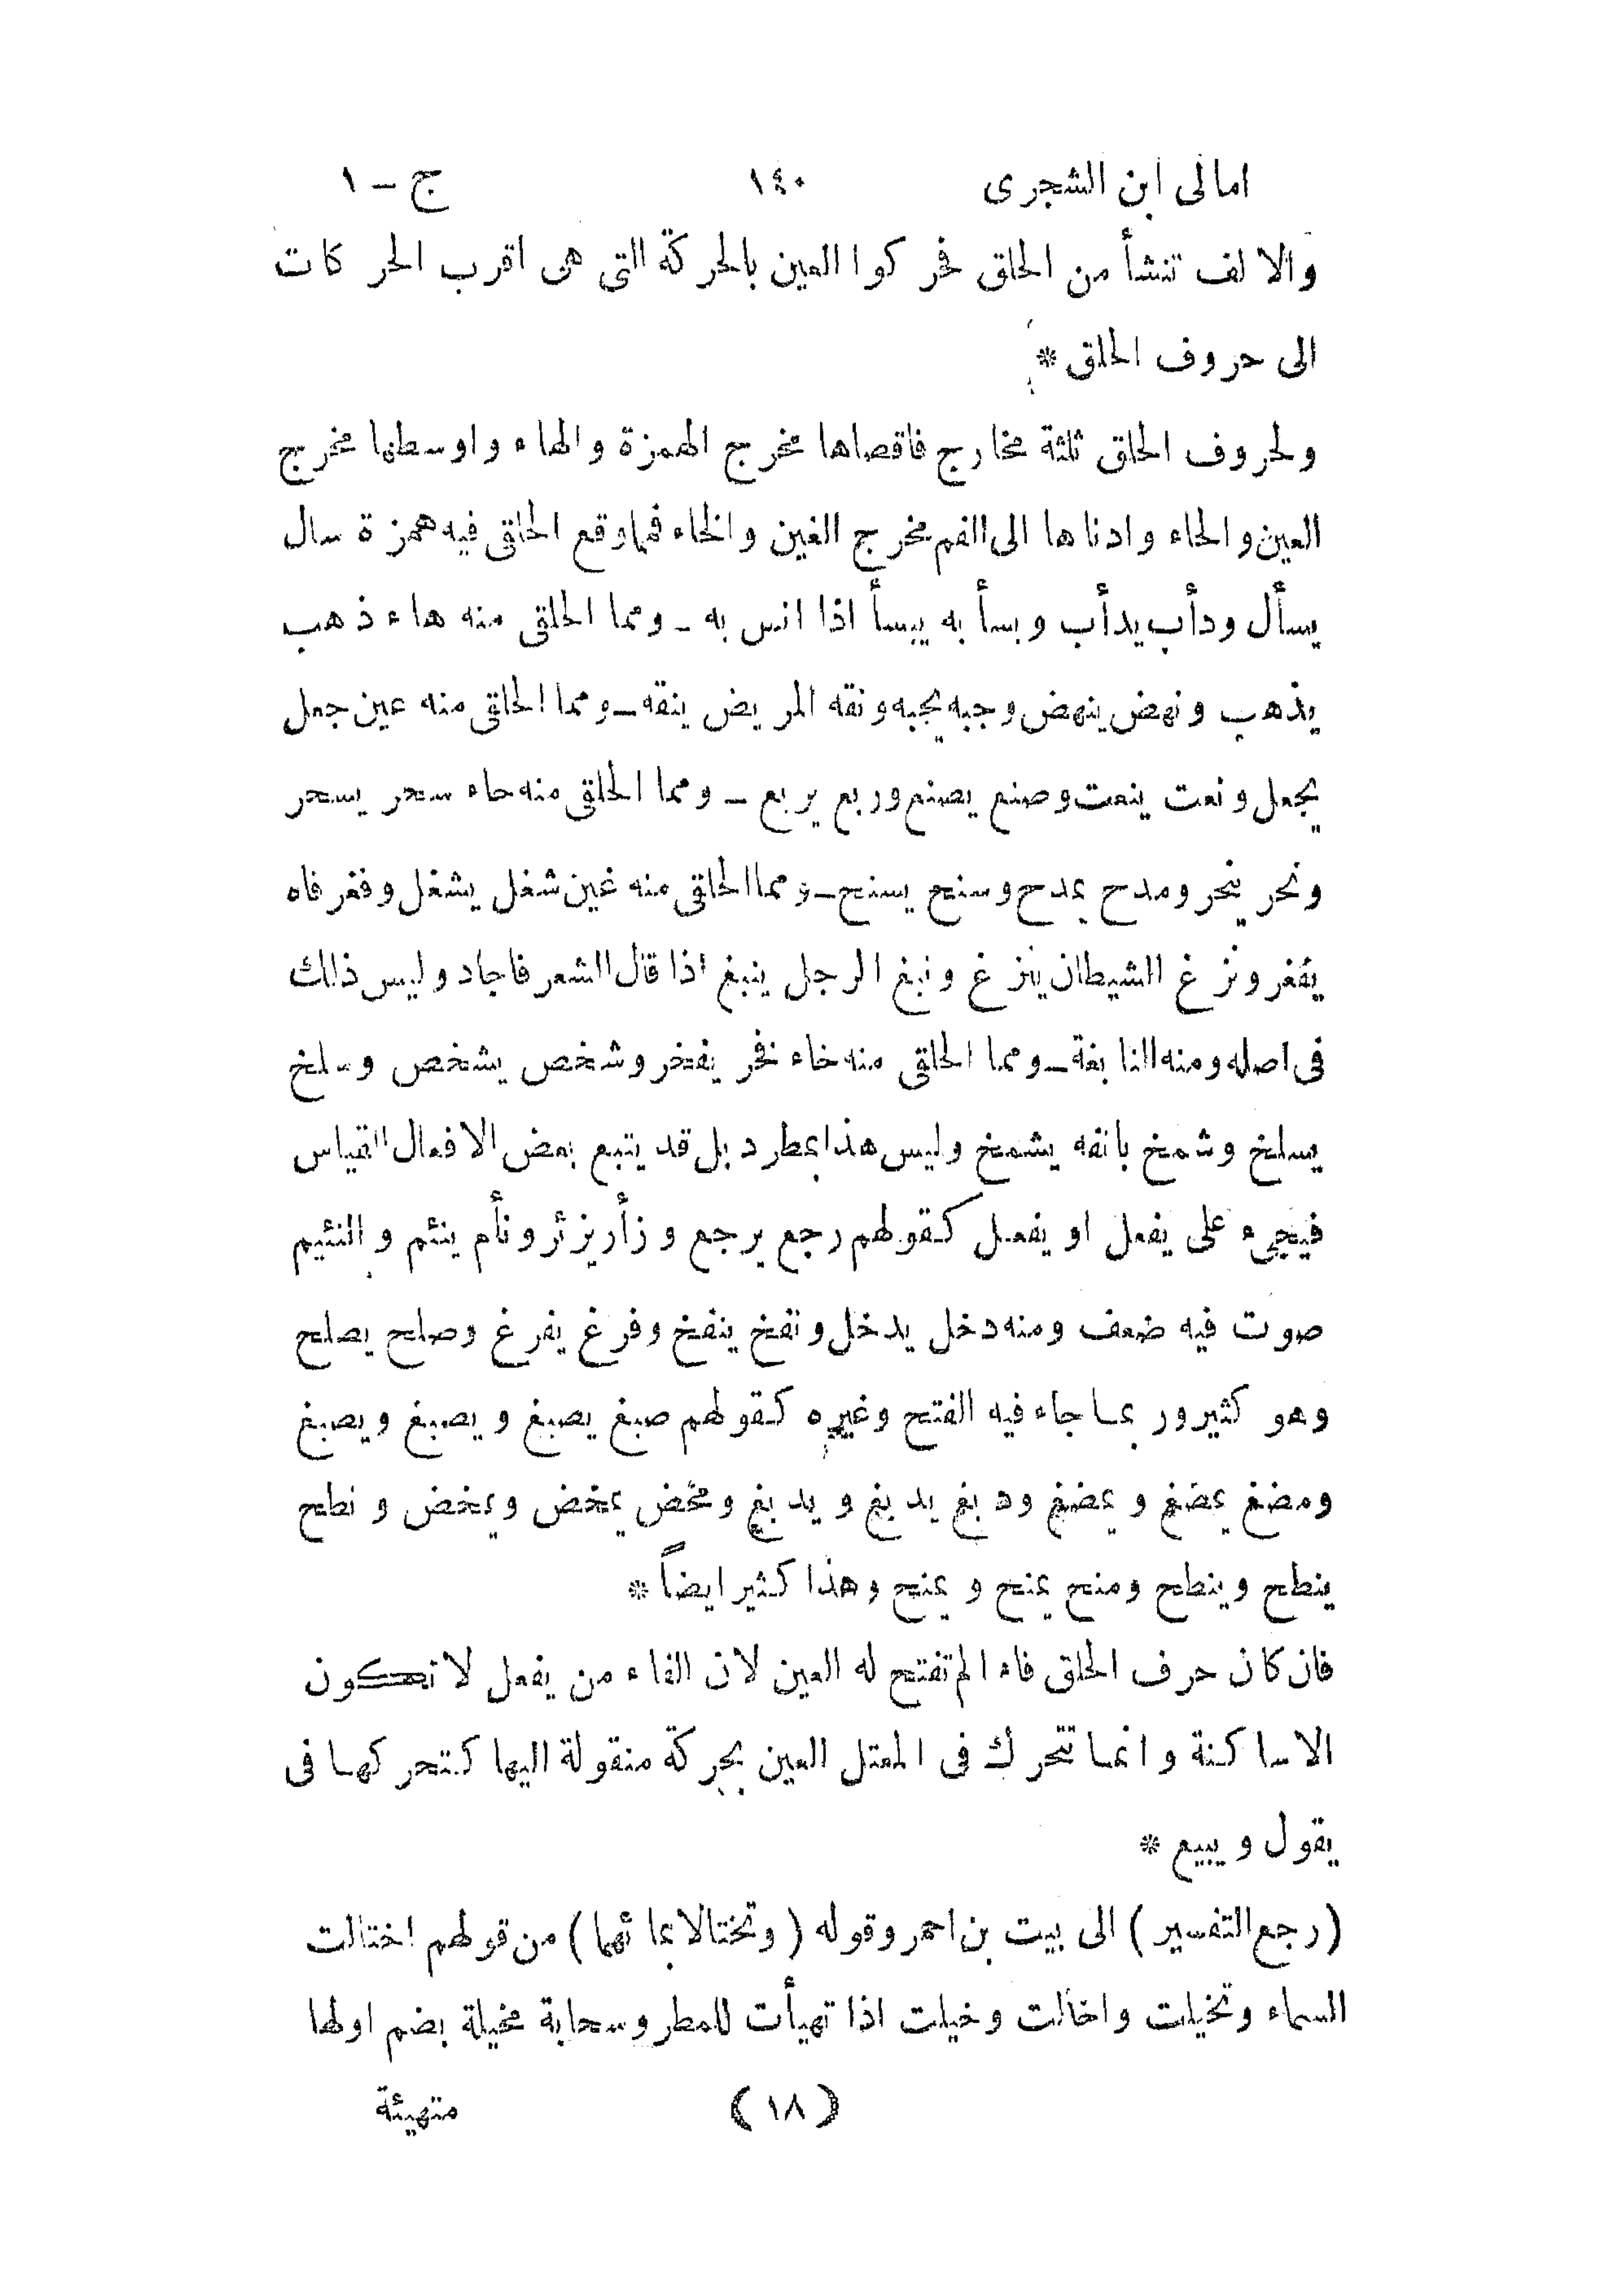 امالى ابن الشجرى ١٤٠ ج – ١
والالف تنشأ من الحلق فحركوا العين بالحركة التى هى اقرب الحركات
الى حروف الحلق *
ولحروف الحلق ثلثة مخارج فاقصاها مخرج الهمزة والهاء واوسطها مخرج
العين والحاء وادناها الى الفم مخرج الغين والخاء فما وقع الحلقى فيه همزة سال
يسأل ودأب يدأب وبسأ به يبسأ اذا انس به – ومما الحلقى منه هاء ذهب
يذهب ونهض ينهض وجبه يجبه ونقه المريض ينقه – ومما الحلقى منه عين جعل
يجعل ونعت ينعت وصنع يصنع وربع يربع – ومما الحلقى منه حاء سحر يسحر
ونحر ينحر ومدح يمدح وسنح يسنح – ومما الحلقى منه غين شغل يشغل وفغر فاه
يفغر ونزغ الشيطان ينزغ ونبغ الرجل ينبغ اذا قال الشعر فاجاد وليس ذلك
فى اصله ومنه النابغة – ومما الحلقى منه خاء فخر يفخر وشخص يشخص وسلخ
يسلخ وشمخ بانفه يشمخ وليس هذا بمطرد بل قد يتبع بعض الافعال القياس
فيجىء على يفعل او يفعل كقولهم رجع يرجع وزأر يزئر ونأم ينئم والنئيم
صوت فيه ضعف ومنه دخل يدخل ونفخ ينفخ وفرغ يفرغ وصلح يصلح
وهو كثير وربما جاء فيه الفتح وغيره كقولهم صبغ يصبغ ويصبغ ويصبغ
ومضغ يمضغ ويمضغ ودبغ يدبغ ويدبغ ومخض يمخض ويمخض ونطح
ينطح وينطح ومنح يمنح ويمنح وهذا كثير ايضاً *
فان كان حرف الحلق فاء لم تفتح له العين لان الفاء من يفعل لا تكون
الا ساكنة وانما تتحرك فى المعتل العين بحركة منقولة اليها كتحركها فى
يقول ويبيع *
(رجع التفسير) الى بيت بن احمر وقوله (وتختالا بمائهما) من قولهم اختالت
السماء وتخيلت واخالت وخيلت اذا تهيأت للمطر وسحابة مخيلة بضم اولها
(١٨) متهيئة